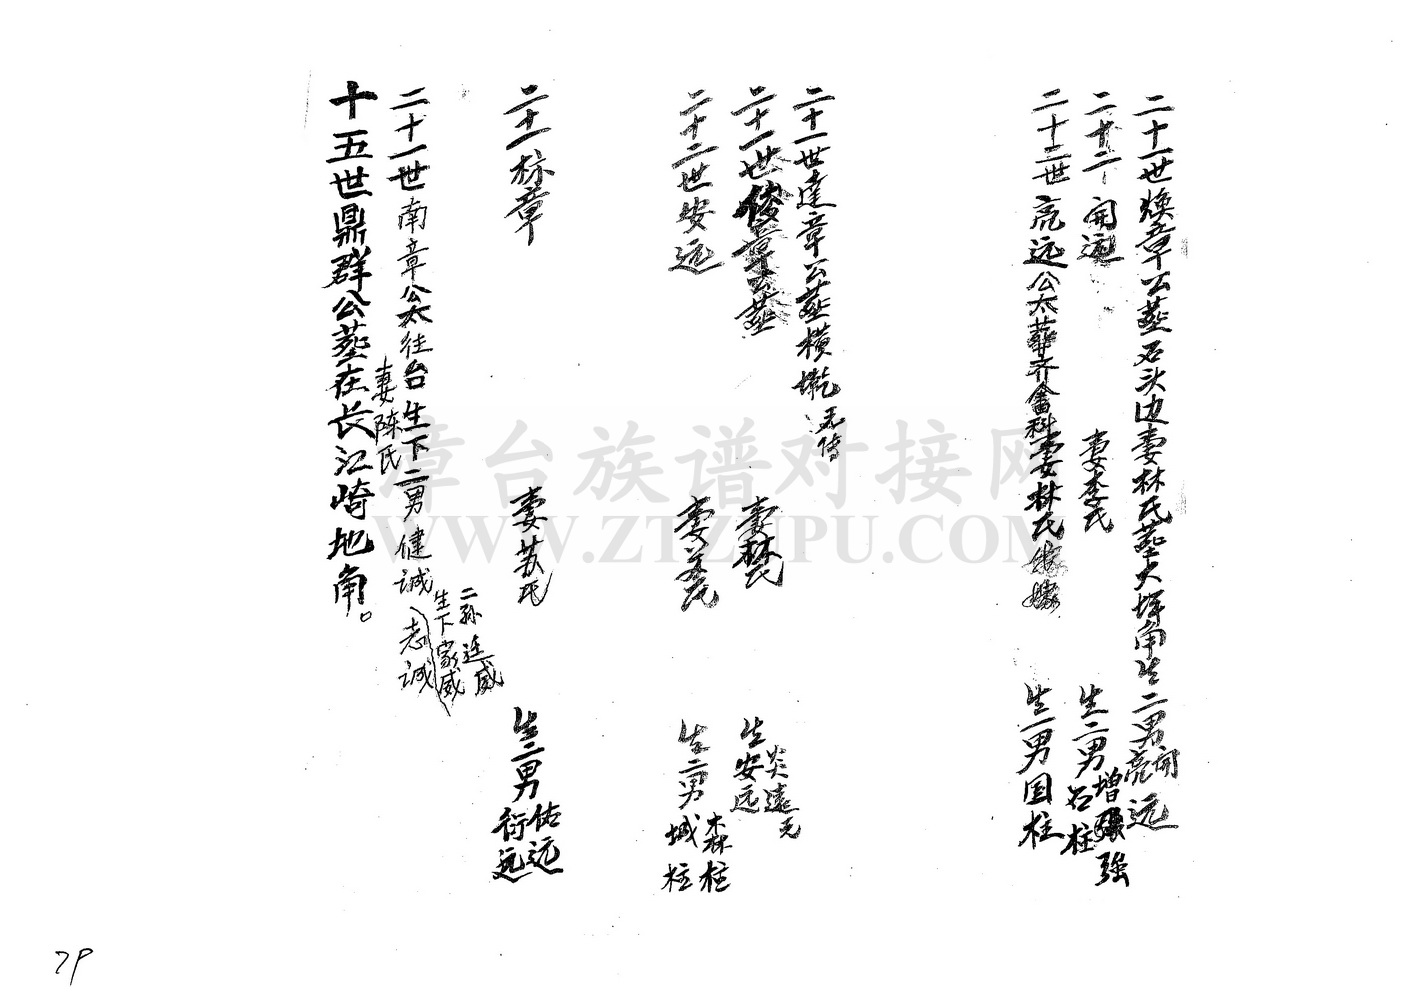 二十一世焕章公葬石头边妻林氏葬大埔角生二男开亮远
二十二开远 妻李氏 生二男石柱增强
二十二世亮远公太葬齐畲科妻林氏 生一男国柱
二十一世达章公葬横 无传
二十一世俊章公葬 妻林氏 生安远炎远无
二十二世安远 妻姜氏 生二男城柱森柱
二十一标章 妻苏氏 生二男衍远佑远
二十一世南章公太往台生下二男健诚志诚
妻陈氏
二孙连威
生下家威
十五世鼎群公葬在长江崎地南。
章台族谱对接网
WWW.ZTZUPU.COM
79